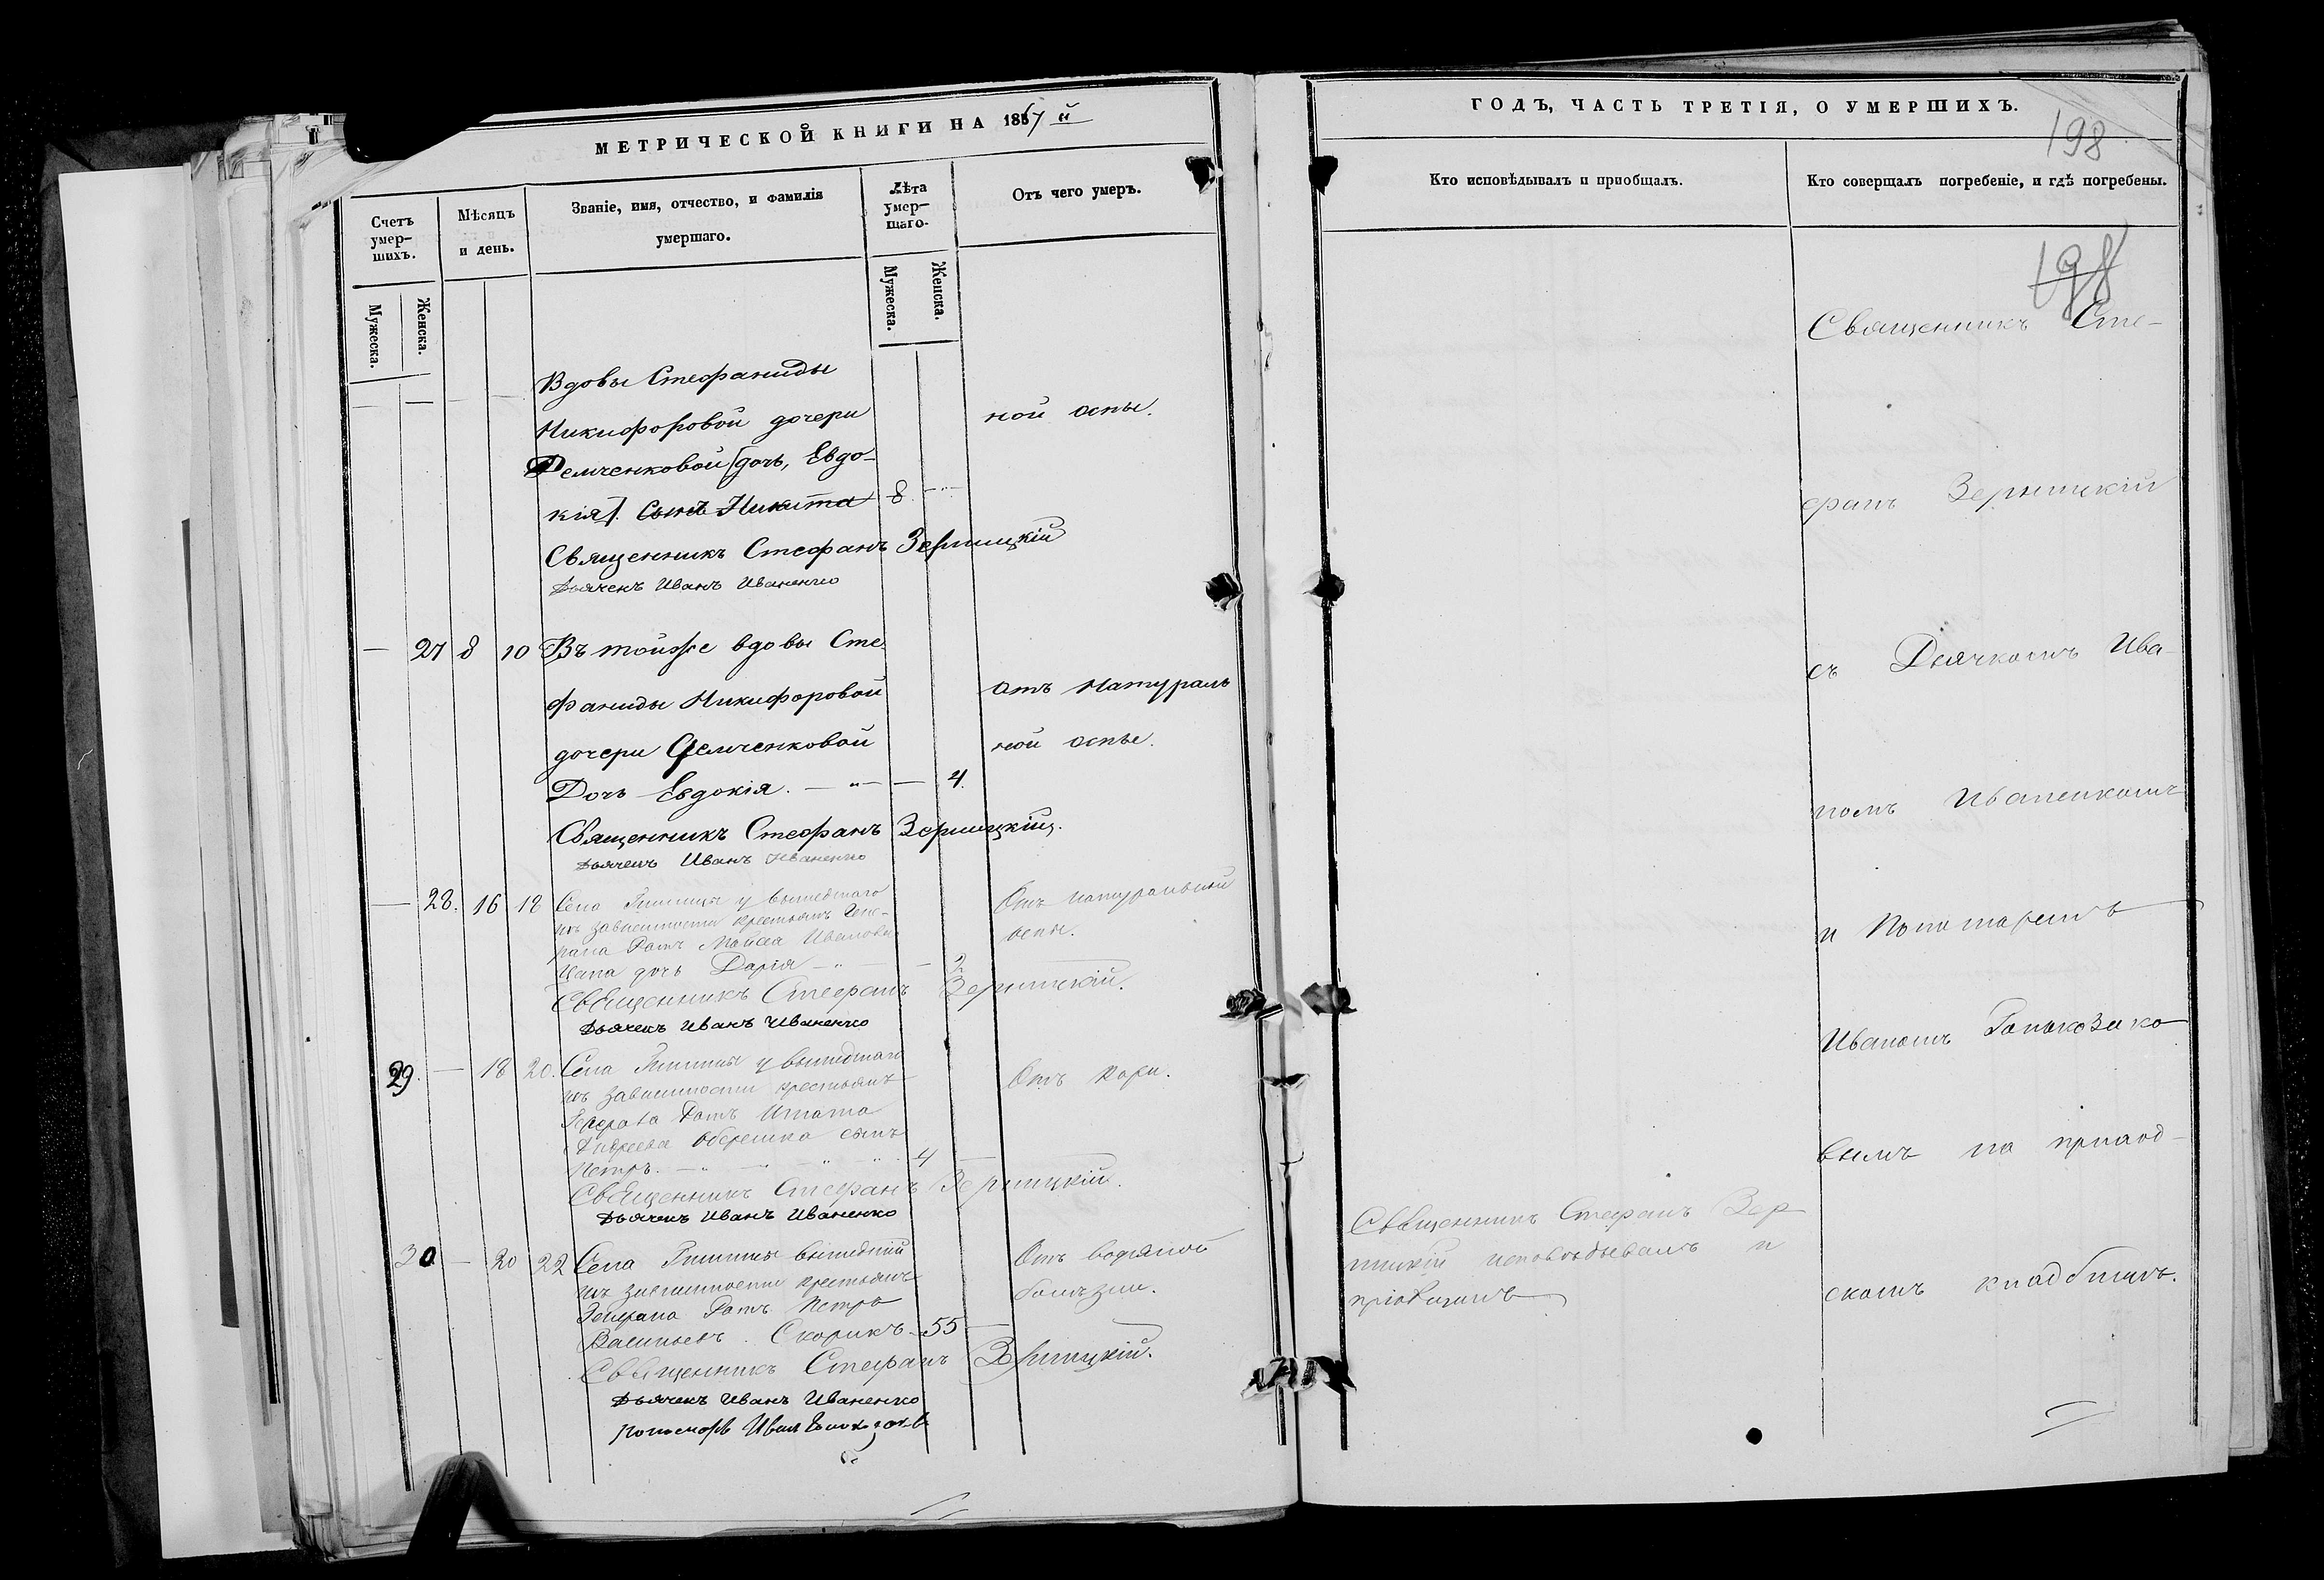 МЕТРИЧЕСКОЙ КНИГИ НА 1867 й
Счетъ умер-шихъ.
Мужеска.
Женска.
Мѣсяцъ и день.
Званіе, имя, отчество, и фамилія умершаго.
Лѣта умер-шаго.
Мужеска.
Женска.
Отъ чего умеръ.
Вдовы Стефаниды
Никифоровой дочери
ной оспы.
Демченковой [дочь, Евдо-
кія]. Сынъ Никита 8
Священникъ Стефанъ Зерницкій
Дьячекъ Иванъ Иваненко
— 27 8 10 Въ тойже вдовы Сте
фаниды Никифоровой
отъ натураль
дочери Демченковой
ной оспы.
Дочь Евдокія. — „ — — 4.
Священникъ Стефанъ Зерницкій.
Дьячекъ Иванъ Иваненко
— 28. 16 18 Села у вышедшаго
Отъ натуральной
изъ зависимости крестьянъ Гене-
оспы.
рала Мойсея Иванова
дочь Дарія — „ — — 2
Священникъ Стефанъ Зерницкій.
Дьячекъ Иванъ Иваненко
29. — 18 20. Села у вышедшаго
Отъ кори.
изъ зависимости крестьянъ
Генерала
Андреева сынъ
Петръ. — „ — „ — „ 4 —
Священникъ Стефанъ Зерницкій.
Дьячекъ Иванъ Иваненко
30 — 20 22 Села вышедшій
Отъ водяной
изъ зависимости крестьянъ
болѣзни.
Генерала Петръ
Васильевъ Скорикъ 55 —
Священникъ Стефанъ Зерницкій.
Дьячекъ Иванъ Иваненко
Пономарь Иванъ
ГОДЪ, ЧАСТЬ ТРЕТІЯ, О УМЕРШИХЪ.
198
Кто исповѣдывалъ и пріобщалъ.
Кто совершалъ погребеніе, и гдѣ погребены.
198
Священникъ Сте-
фанъ Зерницкій
съ Дьячкомъ Ива-
номъ Иваненкомъ
и Пономаремъ
Иваномъ
вымъ на приход-
скомъ кладбищѣ.
Священникъ Стефанъ Зер
ницкій исповѣдывалъ и
пріобщалъ